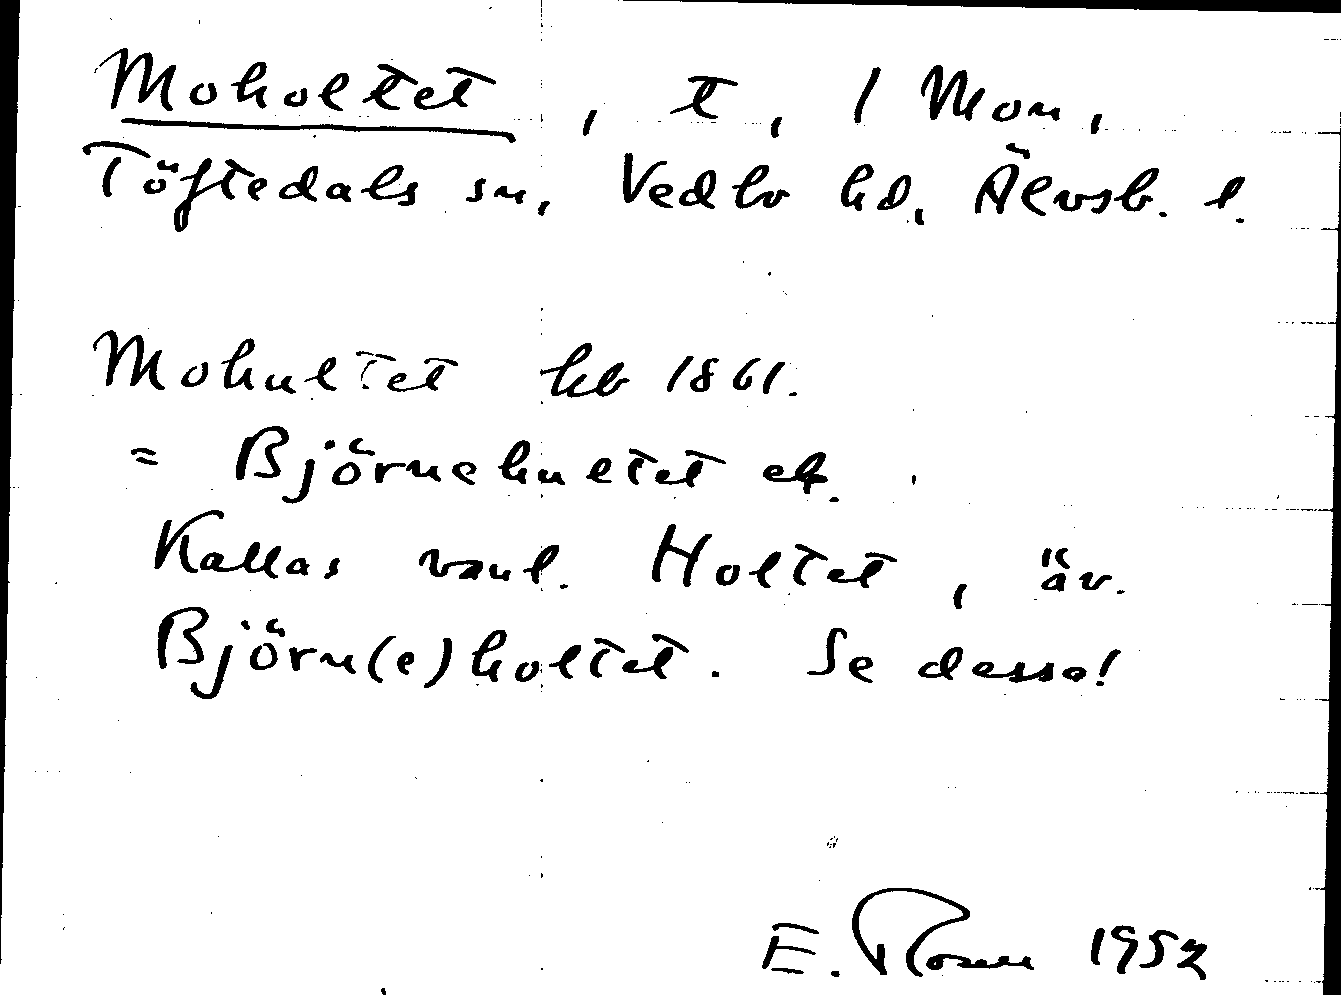 Moholtet, t, 1 Mon,
Töftedals sn, Vedbo hd, Älvsb. l.
Mohultet hb 1861.
= Björnehultet ek.
Kallas vanl. Holtet, äv.
Björn(e)holtet. Se dessa!
E. Rosen 1952